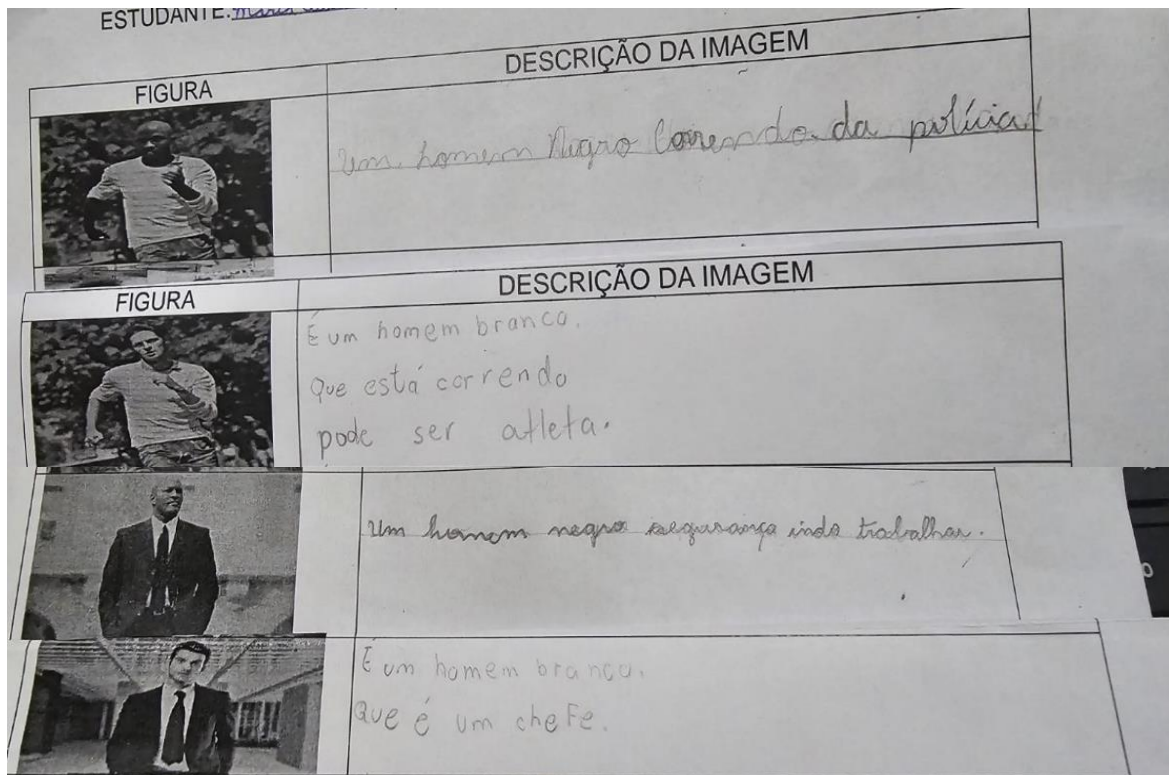 ESTUDANTE:
FIGURA
DESCRIÇÃO DA IMAGEM
Um homem Negro Correndo da polícia!
FIGURA
DESCRIÇÃO DA IMAGEM
É um homem branco.
Que está correndo
pode ser atleta.
Um homem negro segurança indo trabalhar.
É um homem branco.
Que é um cheFe.